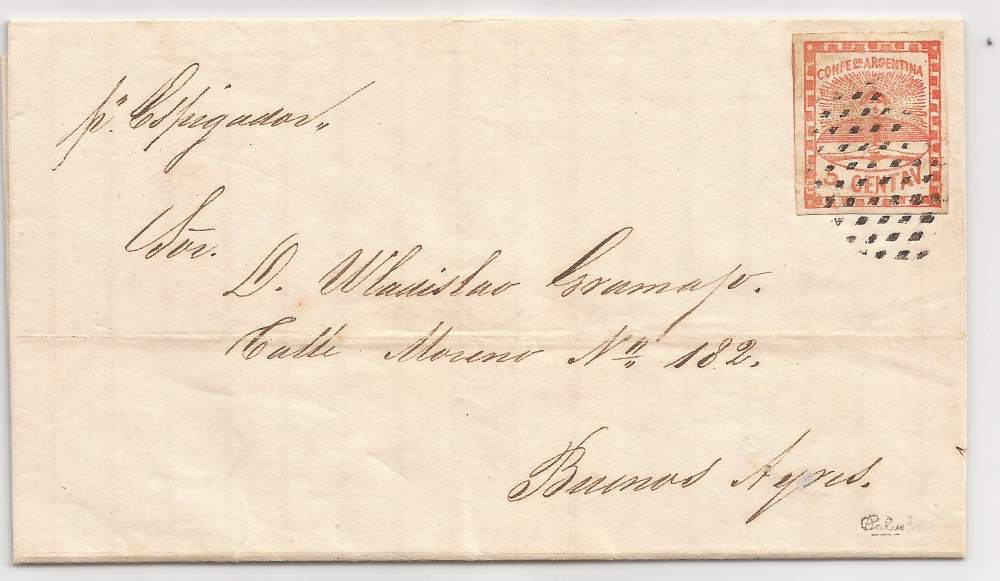 CONFEON ARGENTINA
5 CENTAV
pr. Espigador"
Sór.
D. Wladislao Gramajo.
Calle Moreno No. 182.
Buenos Ayres.